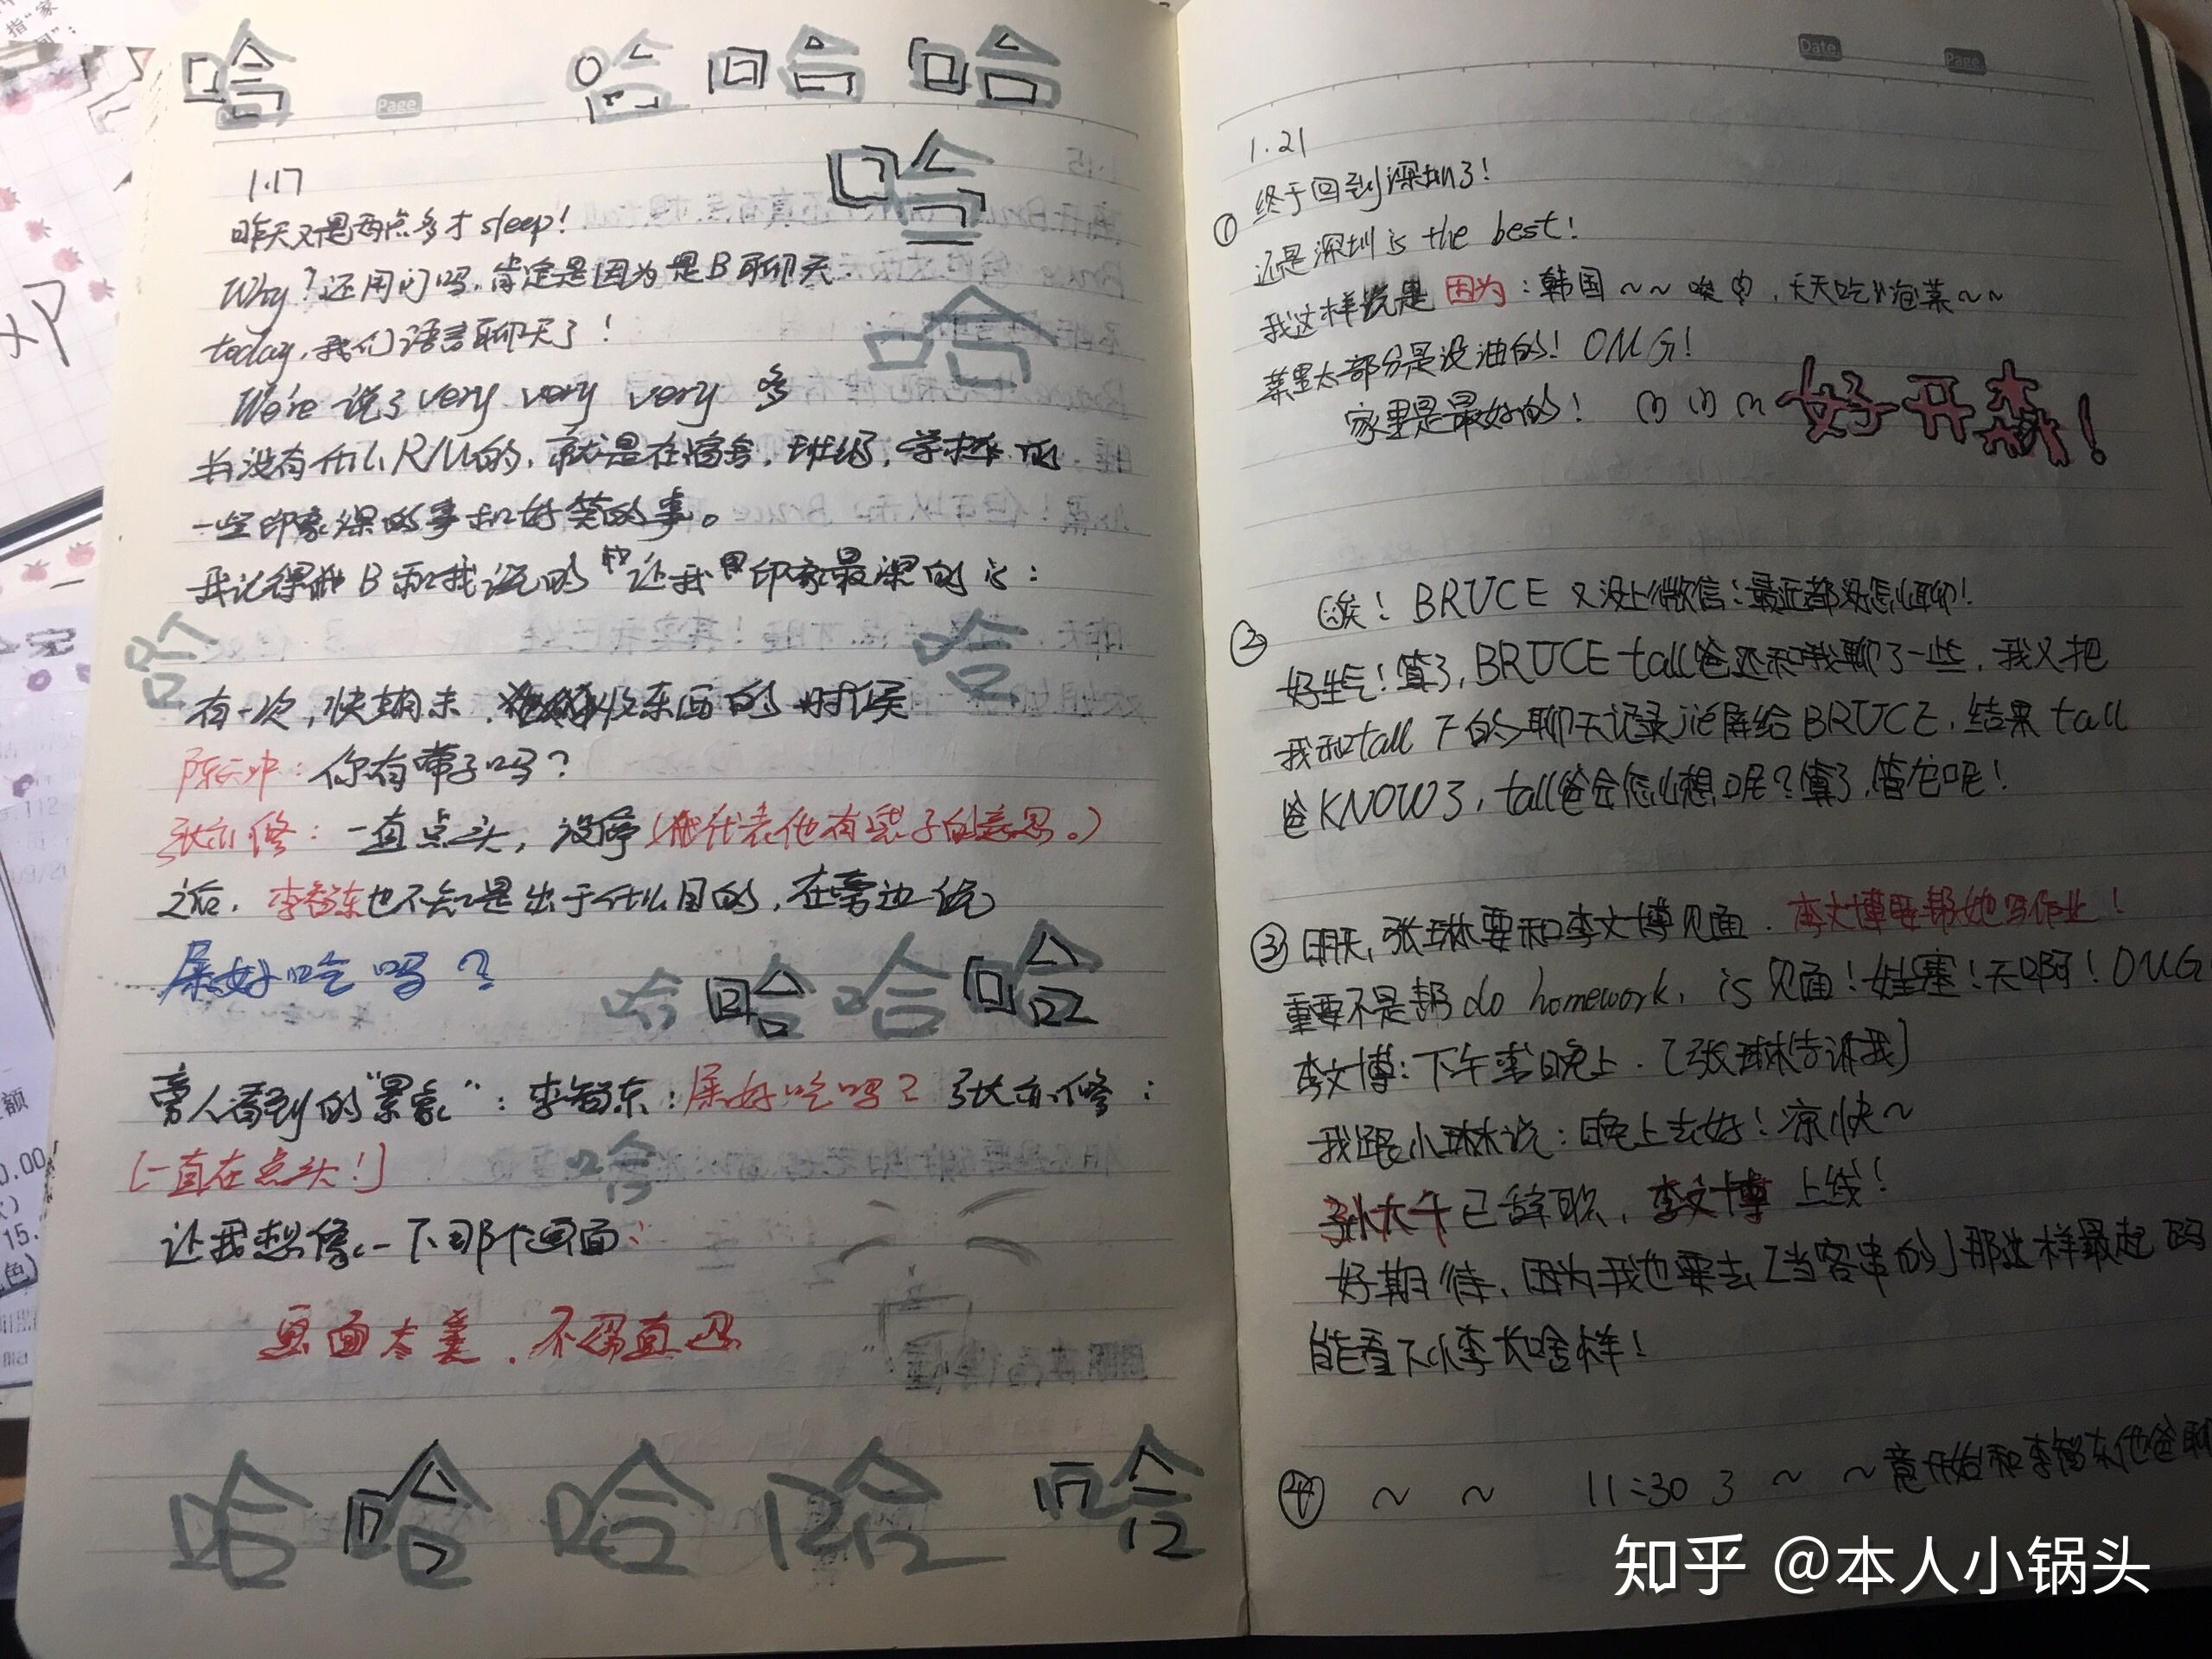 哈 哈 哈 哈
Page
哈
1.17
昨天又是两点多才 sleep!
Why? 还用问吗, 肯定是因为是B聊天
today, 我们语言聊天了!
哈
We're 说了 very very very 多
有什么 R/M的, 就是在宿舍, 班级, 学校 的
一些印象深的事和好笑的事。
我记得 B 和我说的 让我 印象最深的 is:
哈 哈
有一次, 快期末, 收东西的 时候
陈云冲: 你有带子吗?
张亦修: 一直点头, 没停 (代表他有袋子的意思。)
之后, 李智东也不知是出于什么目的, 在旁边说
屎好吃吗?
哈 哈 哈 哈
旁人看到的"景象": 李智东: 屎好吃吗? 张亦修:
[一直在点头!]
哈
让我想像一下那个画面:
画面太美, 不忍直视
哈 哈 哈 哈 哈
Date. Page
1.21
① 终于回到深圳了!
还是深圳 is the best!
我这样说是 因为: 韩国~~ 唉, 天天吃泡菜~~
菜里大部分是没油的! OMG!
家里是最好的! 好开森!
② 唉! BRUCE 又没上微信; 最近都没怎么聊!
好生气! 算了, BRUCE tall爸还和我聊了一些, 我又把
我和tall 下的聊天记录jie屏给BRUCE, 结果 tall
爸KNOW了, tall爸会怎么想呢? 算了, 管它呢!
③ 明天, 张琳要和李文博见面. 李文博要帮她写作业!
重要不是帮 do homework, is 见面! 娃塞! 天啊! OMG
李文博: 下午或晚上. [张琳告诉我]
我跟小琳说: 晚上去好! 凉快~
孙大千已辞职, 李文博 上线!
好期待, 因为我也要去 [当客串的] 那这样最起码
能看下小李长啥样!
④ ~ ~ 11:30 了 ~ ~ 竟开始和李智东他爸聊
知乎 @本人小锅头